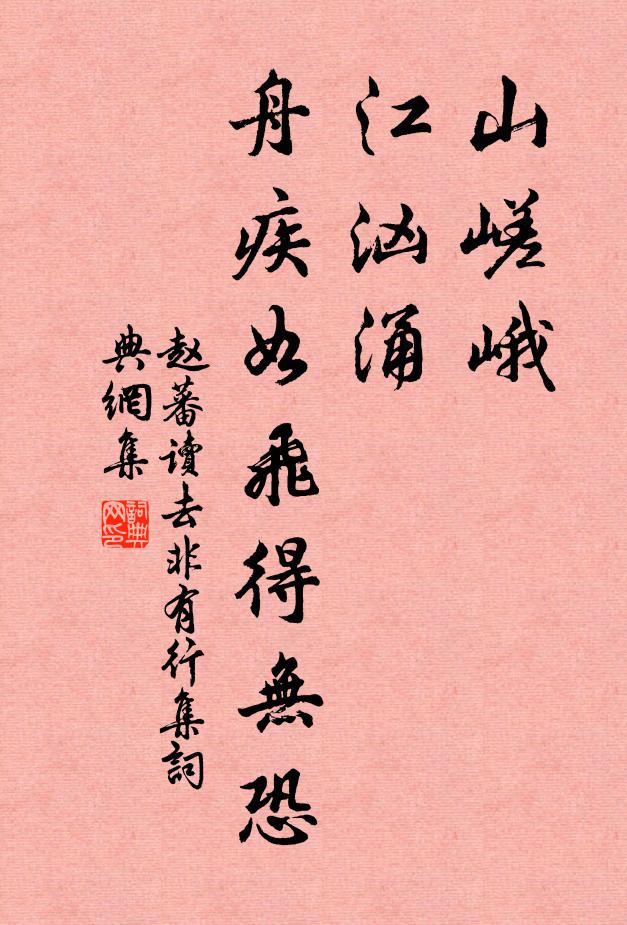 山嵯峨
江汹涌
舟疾如飛得無恐
赵蕃讀去非有行集詞
典網集
詞典網印